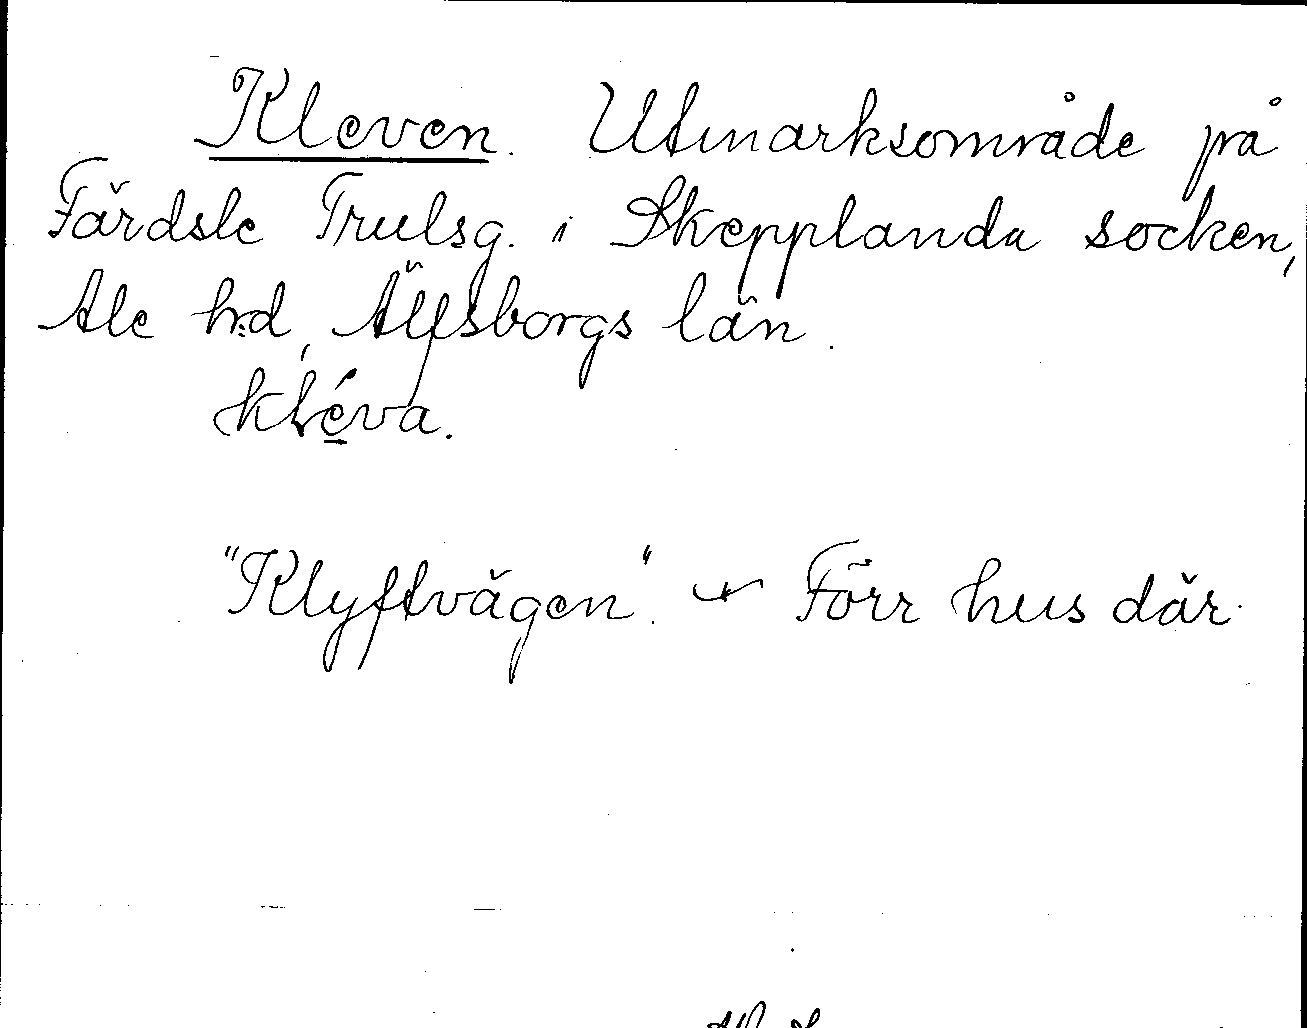 Kleven. Utmarksområde på
Färdsle Trulsg. i Skepplanda socken,
Ale h:d, Älfsborgs län.
kléva.
"Klyftvägen". — Förr hus där.